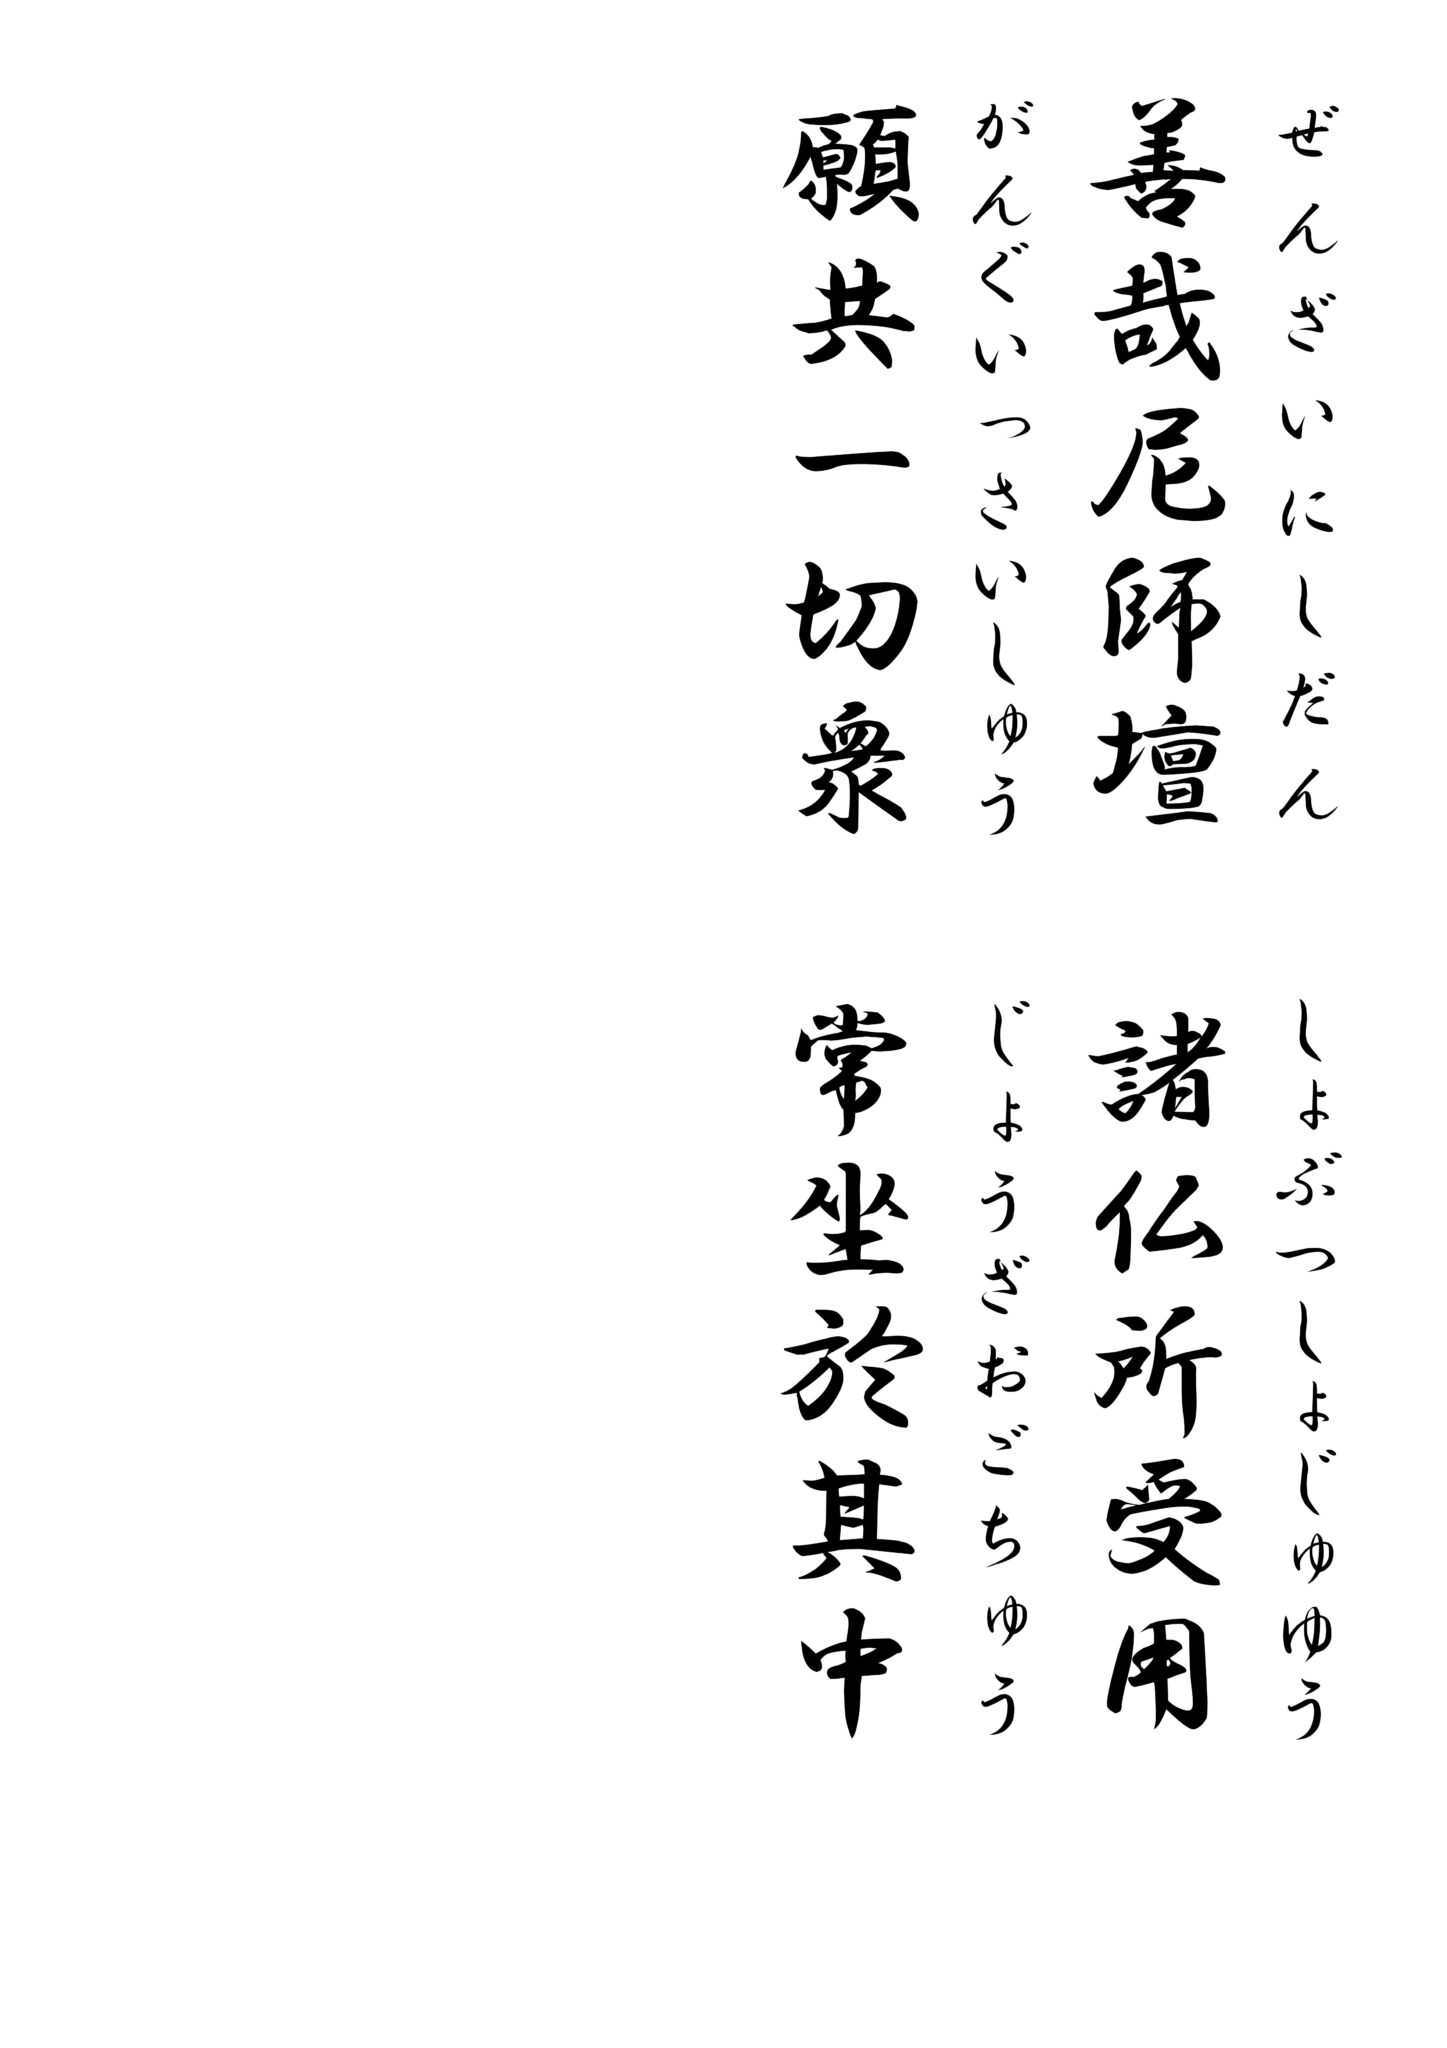 ぜんざいにしだん　しょぶつしょじゅゆう
善哉尼師壇　諸仏所受用
がんぐいっさいしゅう　じょうざおごちゅう
願共一切衆　常坐於其中